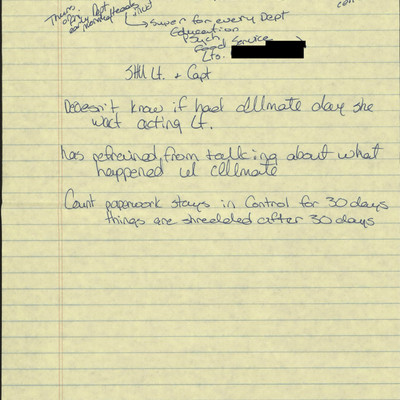 Thurs.
Dept
Super for every Dept
Education
Psych
Food Service
Lts.
SHU Lt. + Capt
Doesn't know if had cellmate day she
was acting Lt.
has refrained from talking about what
happened w/ cellmate
Count paperwork stays in Control for 30 days
things are shredded after 30 days